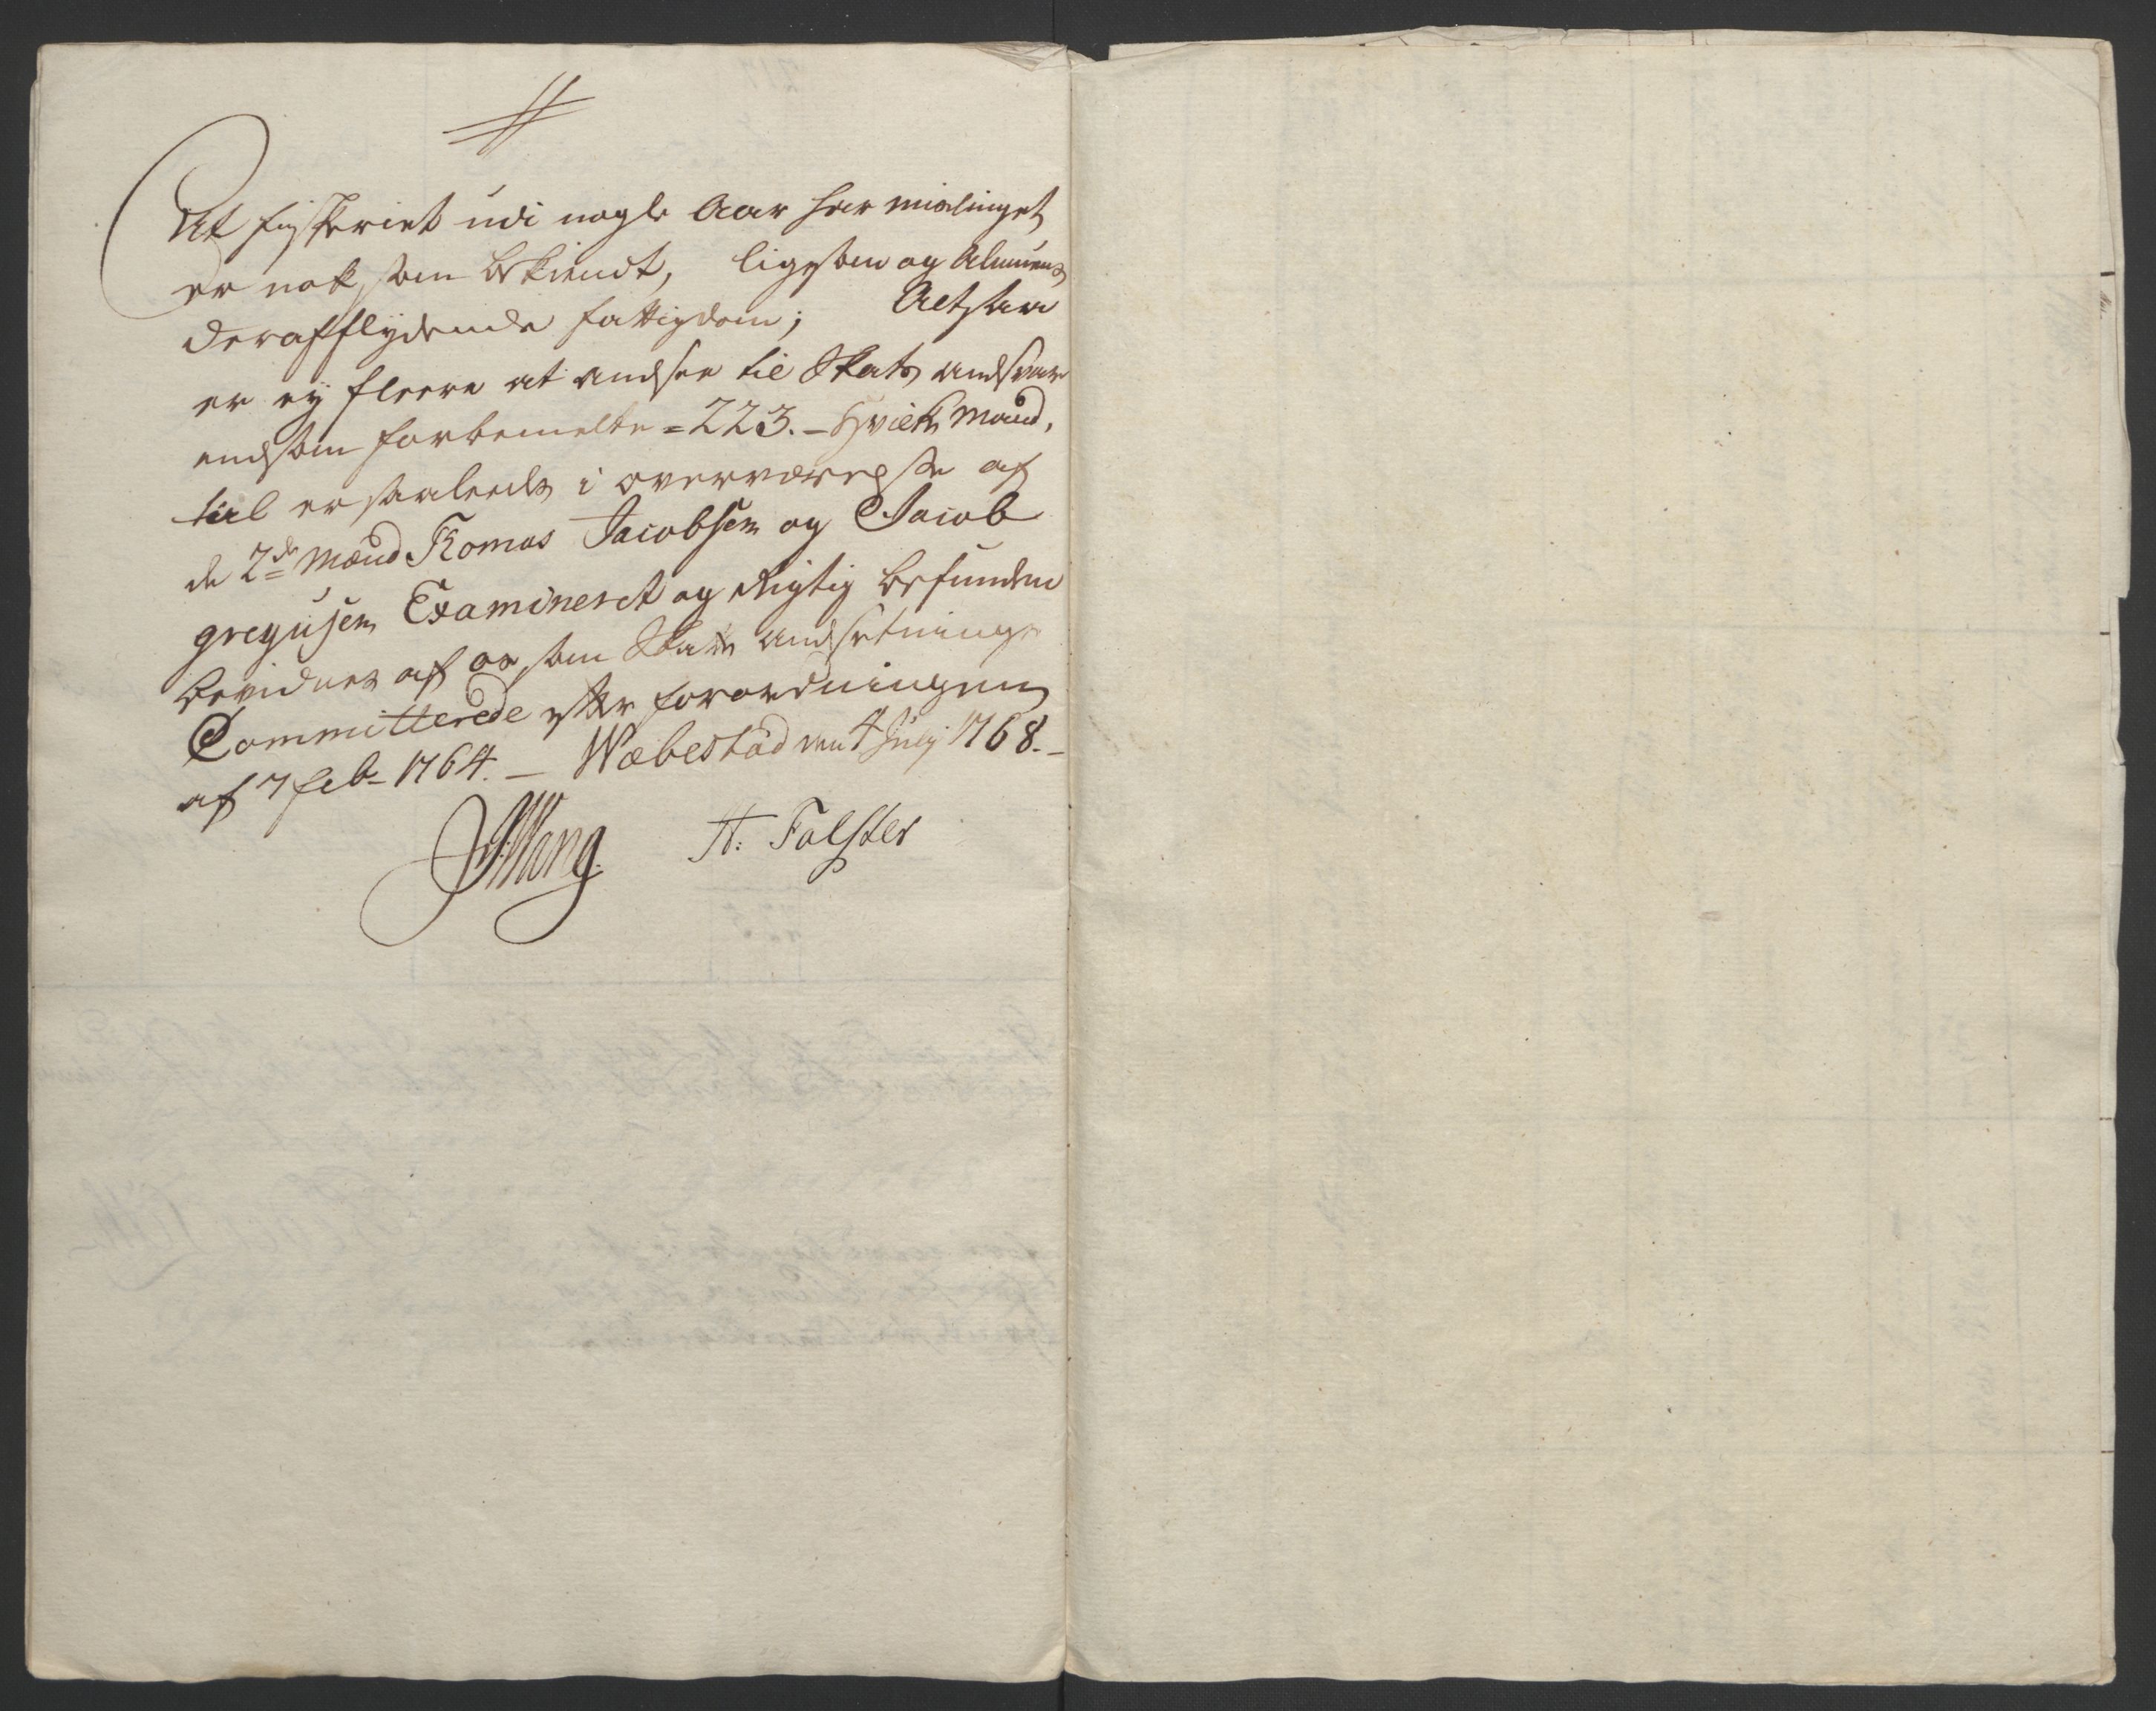 At fiskeriet udi nogle Aar har mislinget
er nok som bekiendt, ligesom og Almuens
derafflydende fattigdom; Altsaa
er ey fleere at andsee til Skats andsvar
endsom forbemelte = 223. - Hvilke Mand,
tal er saaleeds i overværelse af
de 2de Mænd Thomas Jacobsen og Jacob
gregusen Examineret og rigtig befunden
bevidnes af os som Skatte andsetnings
Committerede efter forordningen
af 7 feb- 1764. - Wæbestad den 4 July 1768. -
Wang. H: Falster